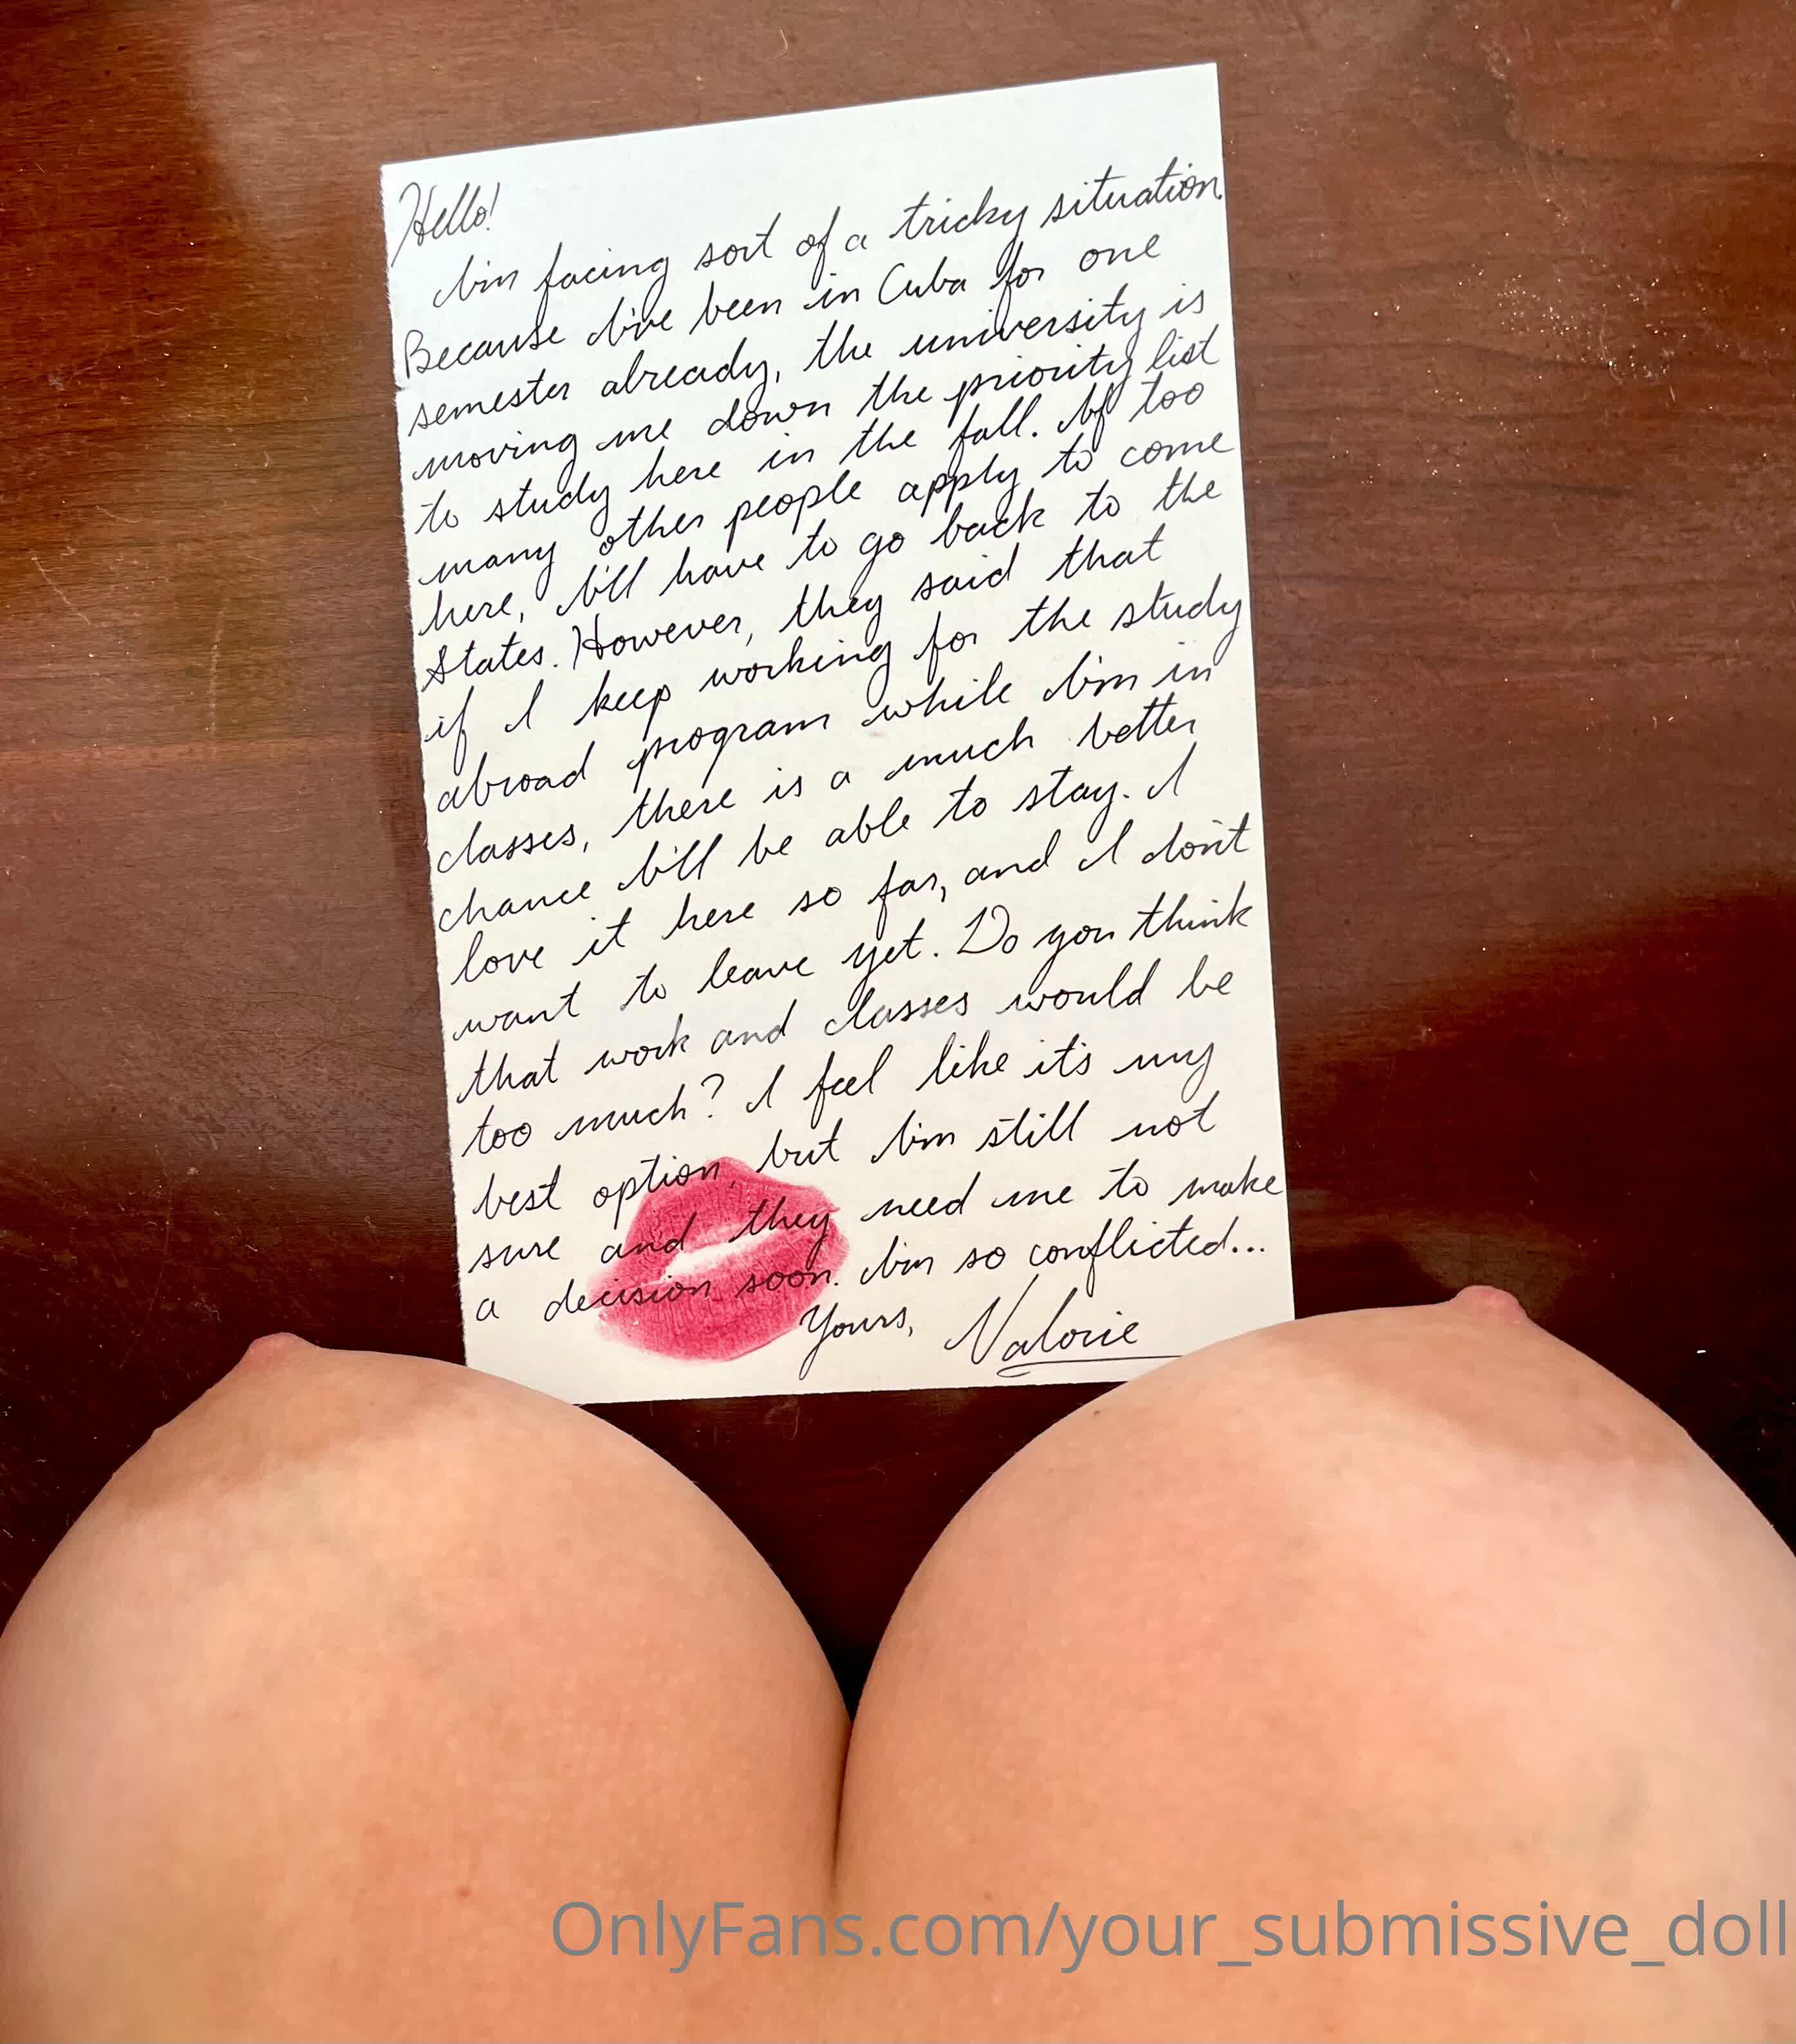 Hello!
I'm facing sort of a tricky situation.
Because I've been in Cuba for one
semester already, the university is
moving me down the priority list
to study here in the fall. If too
many other people apply to come
here, I'll have to go back to the
States. However, they said that
if I keep working for the study
abroad program while I'm in
classes, there is a much better
chance I'll be able to stay. I
love it here so far, and I don't
want to leave yet. Do you think
that work and classes would be
too much? I feel like it's my
best option, but I'm still not
sure and they need me to make
a decision soon. I'm so conflicted...
Yours, Valorie
OnlyFans.com/your_submissive_doll